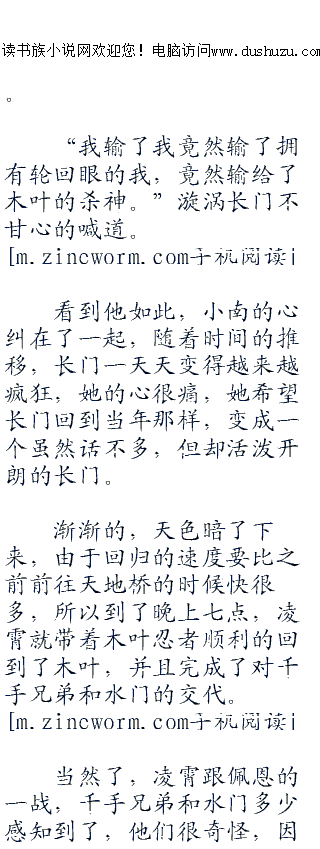 读书族小说网欢迎您！电脑访问www.dushuzu.com
。
“我输了我竟然输了拥
有轮回眼的我，竟然输给了
木叶的杀神。”漩涡长门不
甘心的喊道。
[m.zincworm.com手机阅读]
看到他如此，小南的心
纠在了一起，随着时间的推
移，长门一天天变得越来越
疯狂，她的心很痛，她希望
长门回到当年那样，变成一
个虽然话不多，但却活泼开
朗的长门。
渐渐的，天色暗了下
来，由于回归的速度要比之
前前往天地桥的时候快很
多，所以到了晚上七点，凌
霄就带着木叶忍者顺利的回
到了木叶，并且完成了对千
手兄弟和水门的交代。
[m.zincworm.com手机阅读]
当然了，凌霄跟佩恩的
一战，千手兄弟和水门多少
感知到了，他们很奇怪，因